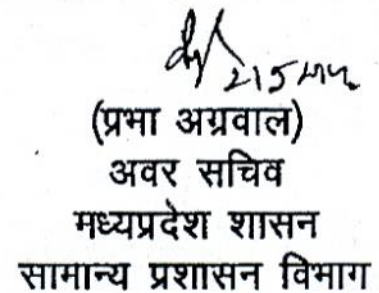 (प्रभा अग्रवाल)
अवर सचिव
मध्यप्रदेश शासन
सामान्य प्रशासन विभाग